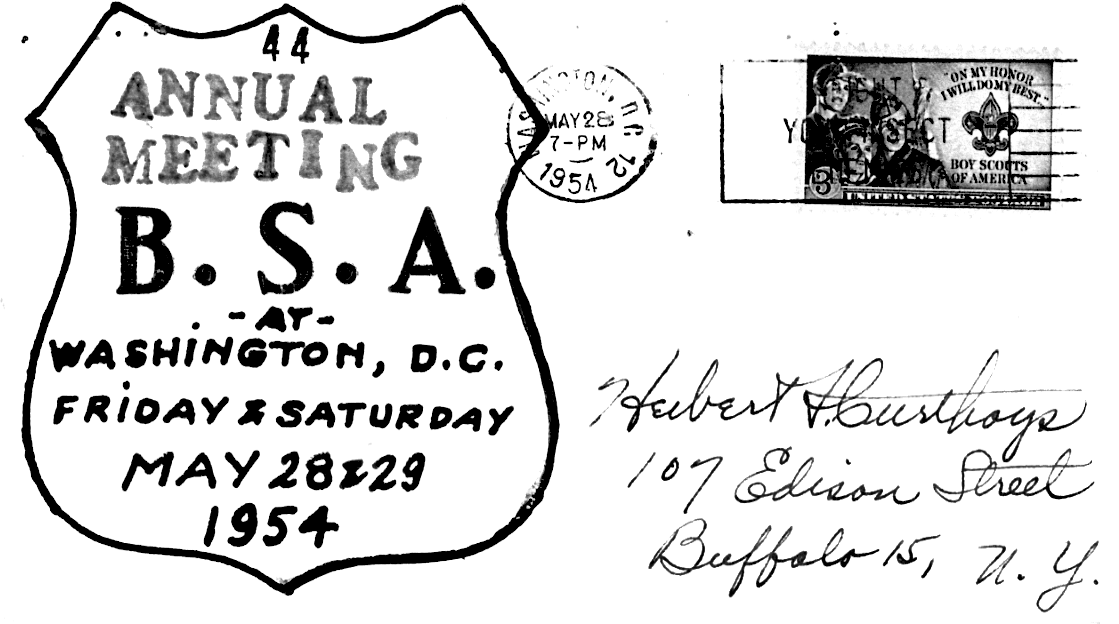 44
ANNUAL
MEETING
B. S. A.
-AT-
WASHINGTON, D.C.
FRIDAY & SATURDAY
MAY 28 & 29
1954
WASHINGTON, D.C. 12
MAY 28
7-PM
1954
"ON MY HONOR
I WILL DO MY BEST..."
BOY SCOUTS
OF AMERICA
3¢
Herbert
107 Edison Street
Buffalo 15, N. Y.